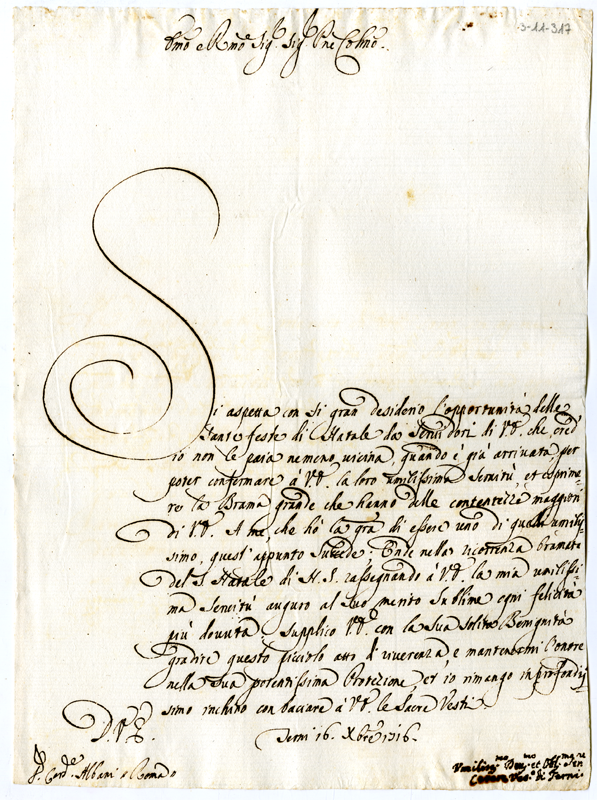 3-11-317
Emo e Rmo Sig.r Sig.r Pne Colmo.
Si aspetta con si gran desiderio l'opportunità delle
Sante feste di Natale da Servidori di V.E. che cred'
io non le paia nemeno vicina, quando è già arrivata per
poter confermare à V.E. la loro umilissima Servitù, et esprime-
re la Brama grande che hanno delle contentezze maggiori
di V.E. A me, che hò la gra di essere uno di quelli umilis-
simo, questi appunto succede. Onde nella ricorrenza bramata
del S. Natale di N.S. rassegnando à V.E. la mia umilissi-
ma Servitù auguro al Suo merito Sublime ogni felicità
più dovuta. Supplico V.E. con la Sua solita Benignità
gradire questo picciolo atto di riverenza, e mantenermi l'onore
nella Sua potentissima Protezione, et io rimango in profondis-
simo inchino con baciare à V.E. le Sacre Vesti.
D.V.E.
Terni 16. Xbre 1716.
S. Card.e Albani Roma
Umilissmo Devmo et Obbmo Sen
Vesco di Terni.